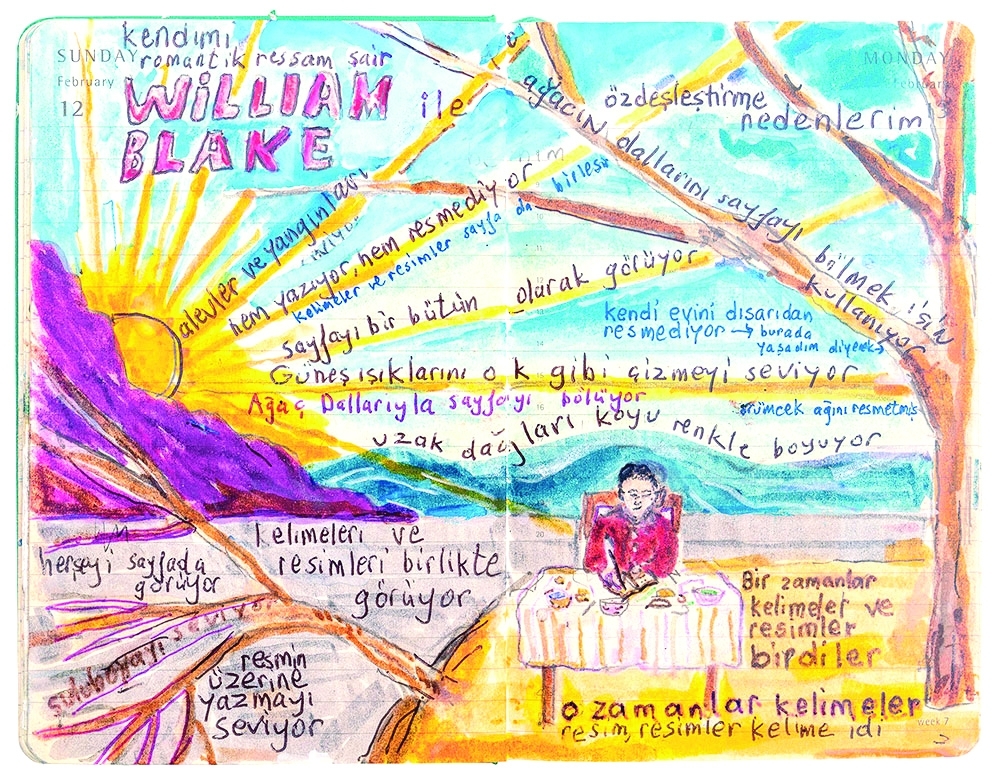 kendimi
SUNDAY
romantik ressam şair
February
12
WiLLIAM
BLAKE
ile
MONDAY
özdeşleştirme
nedenlerim
ağacın dallarını sayfayı bölmek için
kullanıyor
alevler ve yangınları
seviyor
hem yazıyor, hem resmediyor
kelimeler ve resimler sayfa da birleşir
sayfayı bir bütün olarak görüyor
kendi evini dısarıdan
resmediyor → burada
yaşadım diyerek →
Güneş ışıklarını ok gibi çizmeyi seviyor
Ağaç Dallarıyla sayfayı bölüyor
örümcek ağını resmetmiş
uzak dağları koyu renkle boyuyor
herşeyi sayfada
görüyor
kelimeleri ve
resimleri birlikte
görüyor
suluboyayı seviyor
resmin
üzerine
yazmayı
seviyor
Bir zamanlar
kelimeler ve
resimler
birdiler
o zamanlar kelimeler
resim, resimler kelime idi
week 7